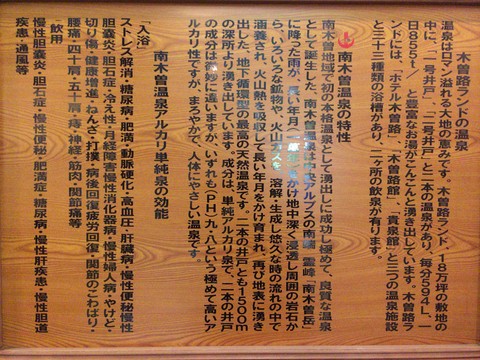 木曽路ランドの温泉
温泉はロマン溢れる大地の恵みです。木曽路ランド・18万坪の敷地の
中に、「一号井戸」、「二号井戸」と二本の温泉があり、毎分594L、一
日855t/と豊富なお湯がこんこんと湧き出しています。木曽路ラ
ンドには、「ホテル木曽路」、「木曽路館」、「貴泉館」と三つの温泉施設
と三十三種類の浴槽があり、二ヶ所の飲泉が有ります。
南木曽温泉の特性
南木曽地域で初の本格温泉として掘出しに成功し極めて、良質な温泉
として誕生した、南木曽温泉は中央アルプスの南端、霊峰「南木曽岳」
に降った雨が、長い年月
かけ地中深く浸透し周囲の岩石か
ら、いろいろな鉱物や、火山ガスを、溶解・生成し悠久な時の流れの中で
涵養され、火山熱を吸収して長い年月をかけ育まれ、再び地表に湧き
出した、地下循環型の最高の天然温泉です。二本の井戸とも1500m
の深所より湧き出しています。成分は、単純アルカリ泉で、二本の井戸
の成分は微妙に違いますが、いずれも(PH)九・八という極めて高いア
ルカリ性ですが、まろやかで、人体にやさしい温泉です。
南木曽温泉アルカリ単純泉の効能
「入浴
ストレス解消・糖尿病・肥満・動脈硬化・高血圧・肝臓病・慢性便秘・慢性
胆嚢炎・胆石症・冷え性・月経障害慢性消化器病・慢性婦人病・やけど・
切り傷・健康増進・ねんざ・打撲・病後回復疲労回復・関節のこわばり・
腰痛・四十肩・五十肩・痔・神経・筋肉・関節痛等
・飲用
慢性胆嚢炎・胆石症・慢性便秘・肥満症・糖尿病・慢性肝疾患・慢性胆道
疾患・通風等